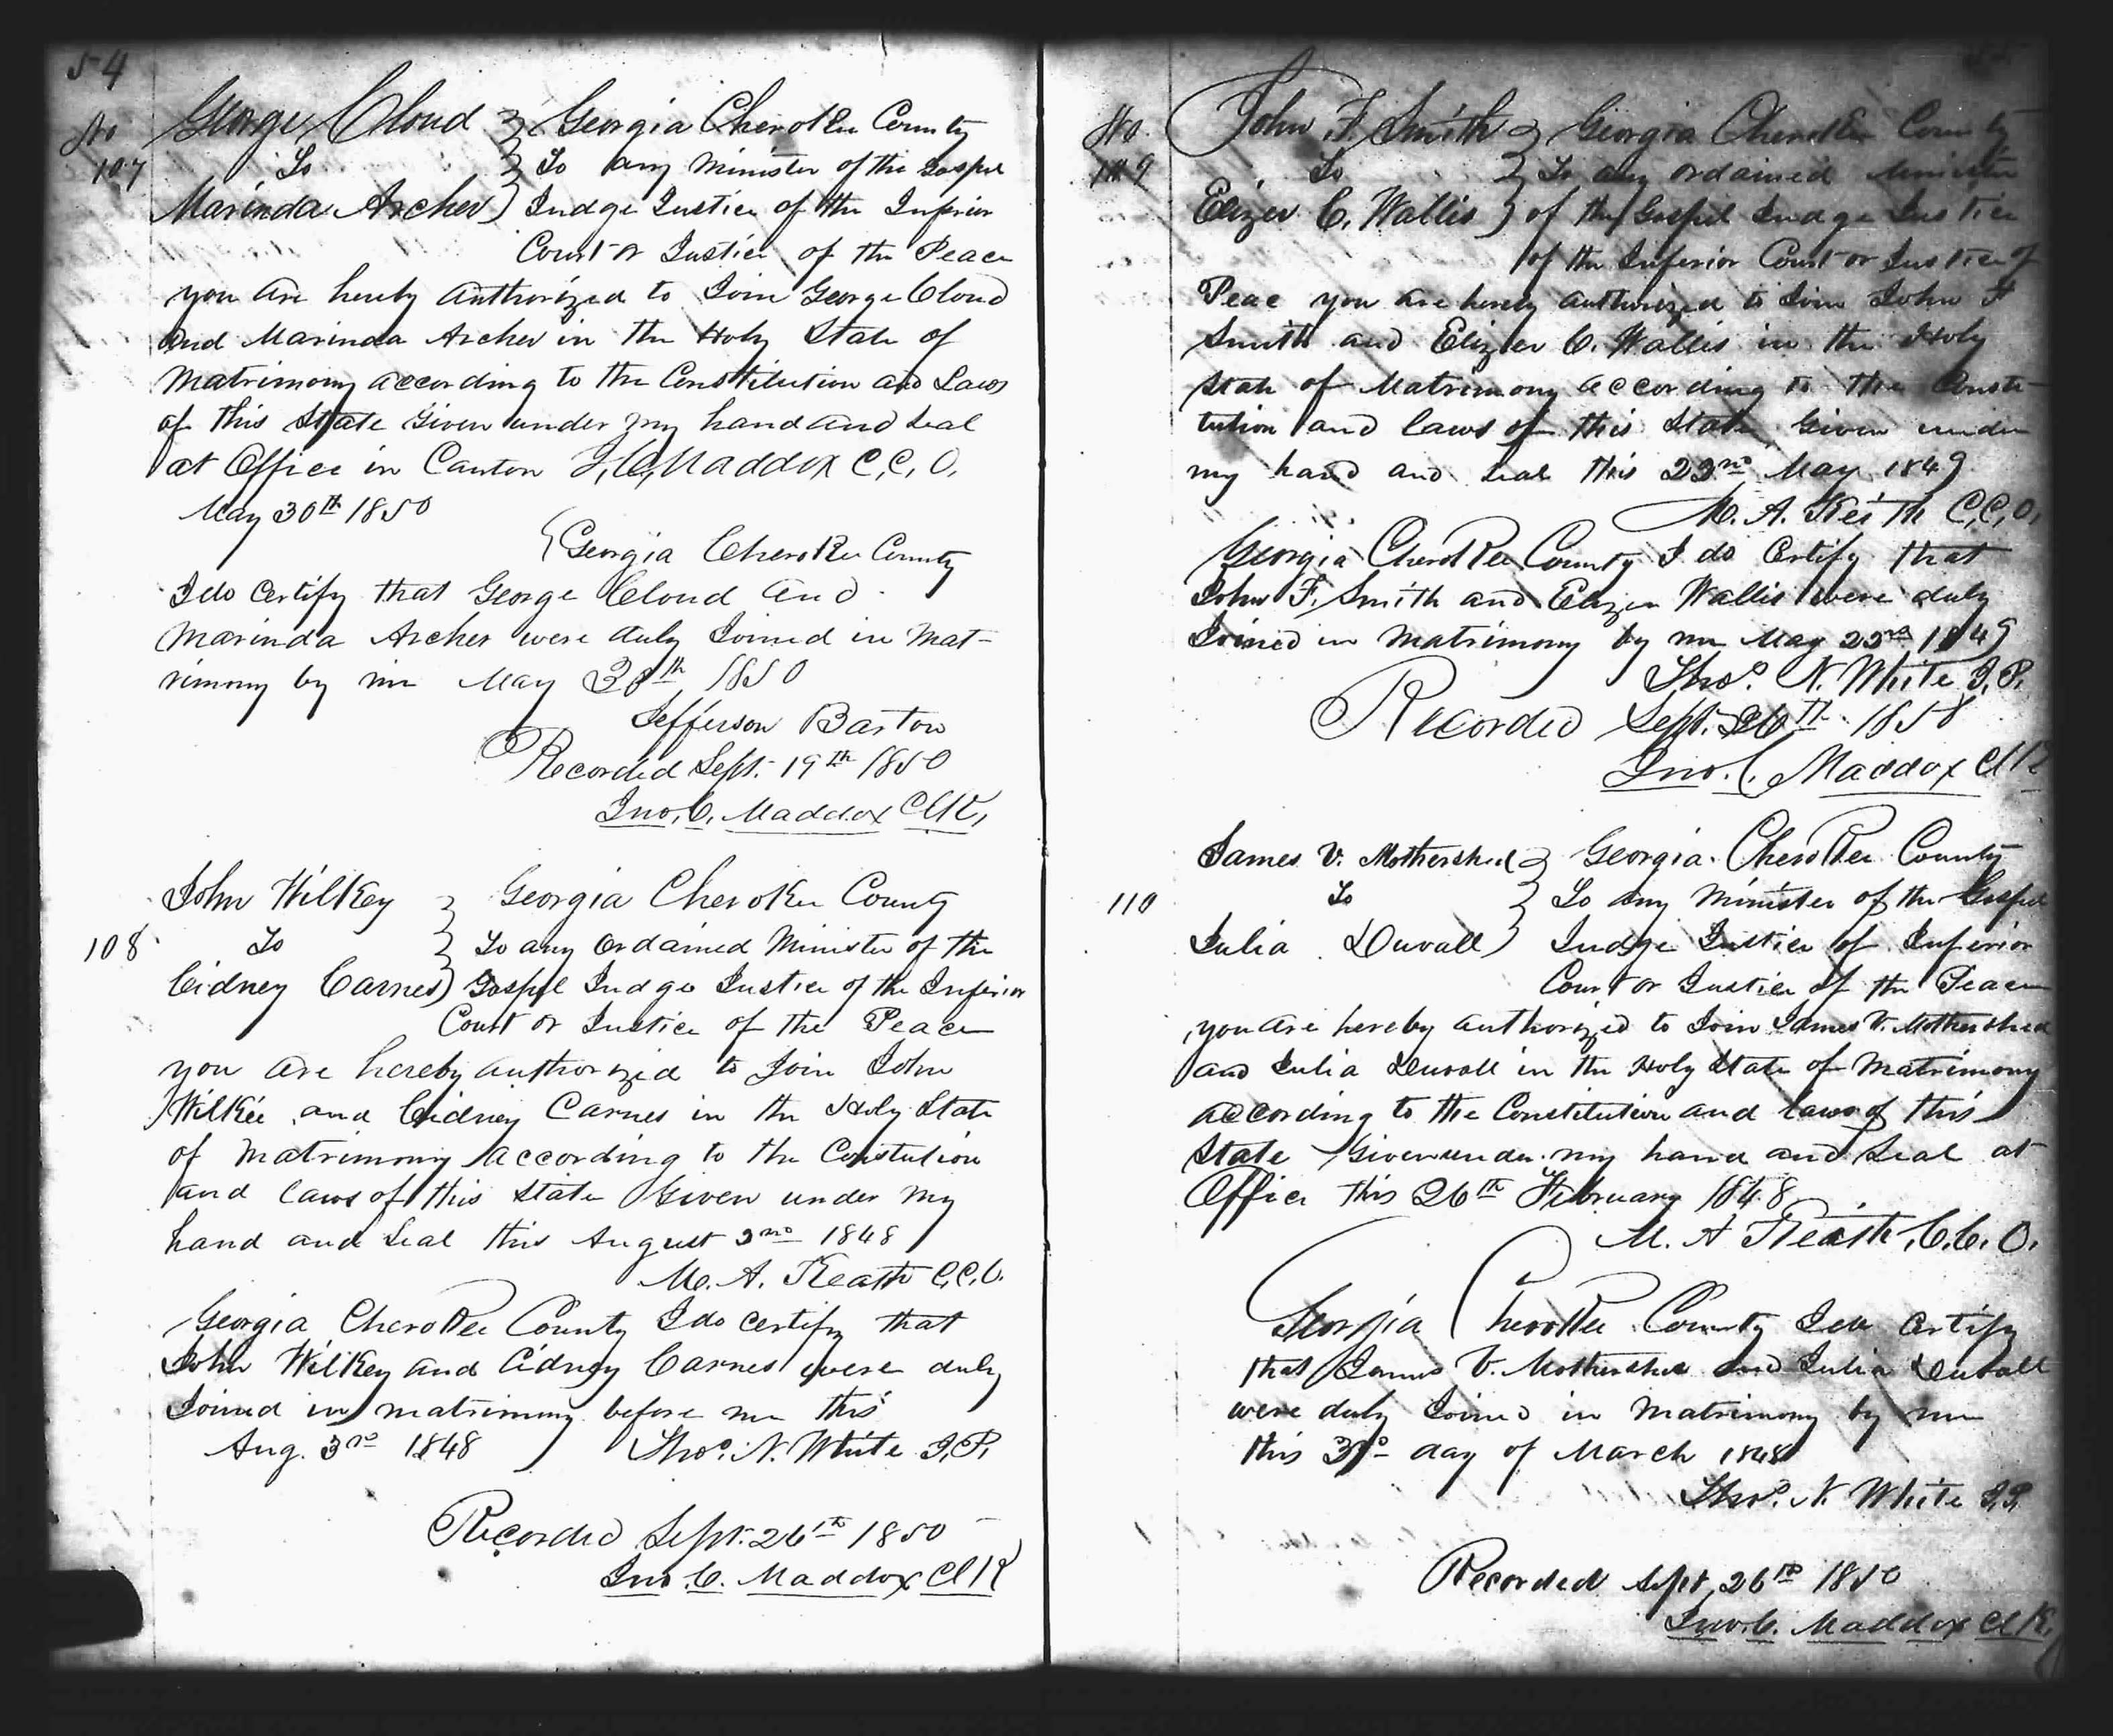 54
No 107
George Cloud } Georgia Cherokee County
To } To any Minister of the Gospel
Marinda Archer } Judge Justice of the Inferior
Court or Justice of the Peace
you are hereby authorized to Join George Cloud
and Marinda Archer in the Holy State of
Matrimony according to the Constitution and Laws
of this State Given under my hand and Seal
at Office in Canton J, C, Maddox C, C, O,
May 30th 1850
{ Georgia Cherokee County
I do Certify that George Cloud and
Marinda Archer were duly Joined in Mat-
rimony by me May 30th 1850
Jefferson Barton
Recorded Sept. 19th 1850
Jno, C, Maddox ClK,
108
John Wilkey } Georgia Cherokee County
To } To any Ordained Minister of the
Cidney Carnes } Gospel Judge Justice of the Inferior
Court or Justice of the Peace
you are hereby authorized to Join John
Wilkie and Cidney Carnes in the Holy State
of Matrimony according to the Constution
and laws of this State Given under my
hand and Seal this August 3rd 1848
M. A. Keath C, C, O.
Georgia Cherokee County I do certify that
John Wilkey and Cidney Carnes were duly
Joined in matrimony before me this
Aug. 3rd 1848 Thos. N. White J.P.
Recorded Sept. 26th 1850
Jno. C. Maddox ClK
No. 109
John F. Smith } Georgia Cherokee County
To } To any ordained Minister
Elizer C. Wallis } of the Gospel Judge Justice
of the Inferior Court or Justice of
Peac you are hereby authorized to Join John F
Smith and Elizer C. Wallis in the Holy
State of Matrimony according to the Consti-
tution and laws of this State, Given under
my hand and Seal this 22nd May 1849
M. A. Keith C, C, O,
Georgia Cherokee County I do Certify that
John F. Smith and Elizer Wallis were duly
Joined in matrimony by me May 23rd 1849
Thos. N. White J.P.
Recorded Sept. 26th 1850
Jno. C. Maddox ClK
110
James V. Mothershed } Georgia Cherokee County
To } To any Minister of the Gospel
Julia Duvall } Judge Justice of Inferior
Court or Justice of the Peace
you are hereby authorized to Join James V. Mothershed
and Julia Duvall in the Holy State of Matrimony
according to the Constitution and laws of this
State Given under my hand and Seal at
Office this 26th February 1848
M. A Keath, C.C. O.
Georgia Cherokee County I do Certify
that James V. Mothershed and Julia Duvall
were duly Joined in Matrimony by me
this day of March 1848
Thos. N. White J.P.
Recorded Sept, 26th 1850
Jno. C. Maddox ClK,